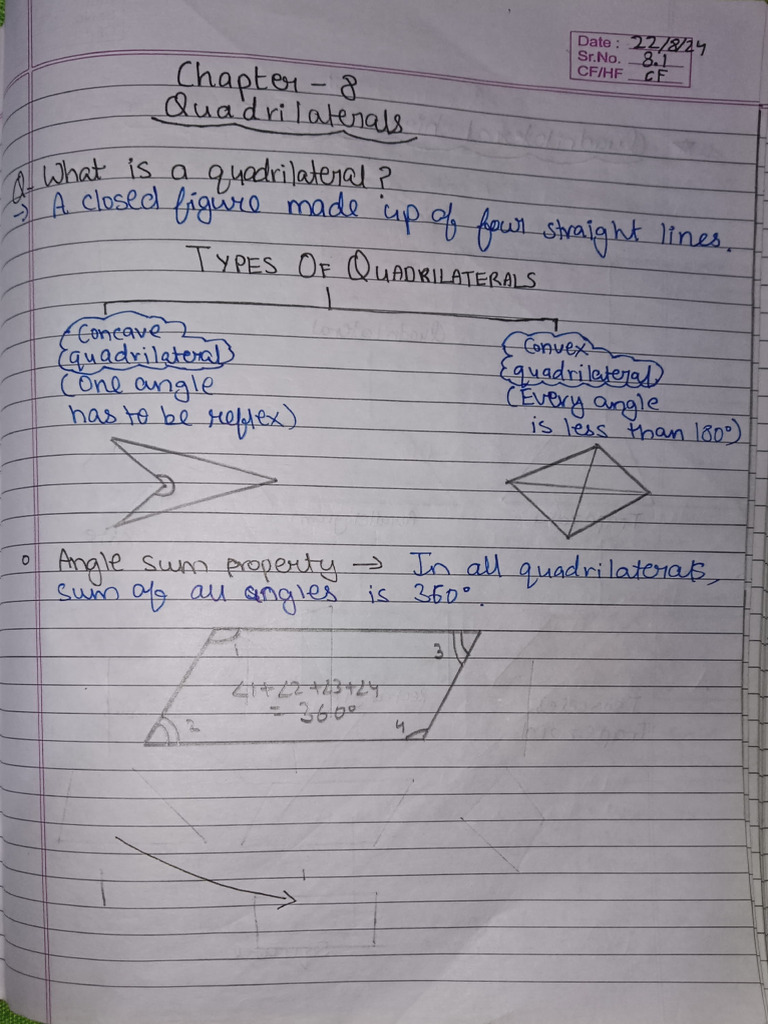 Date : 22/8/24
Sr.No. 8.1
CF/HF CF
Chapter - 8
Quadrilaterals
Q- What is a quadrilateral?
→ A closed figure made up of four straight lines.
TYPES OF QUADRILATERALS
Concave
quadrilateral
(One angle
has to be reflex)
Convex
quadrilateral
(Every angle
is less than 180°)
Angle sum property → In all quadrilaterals,
sum of all angles is 360°.
1
3
∠1+∠2+∠3+∠4
= 360°
2
4